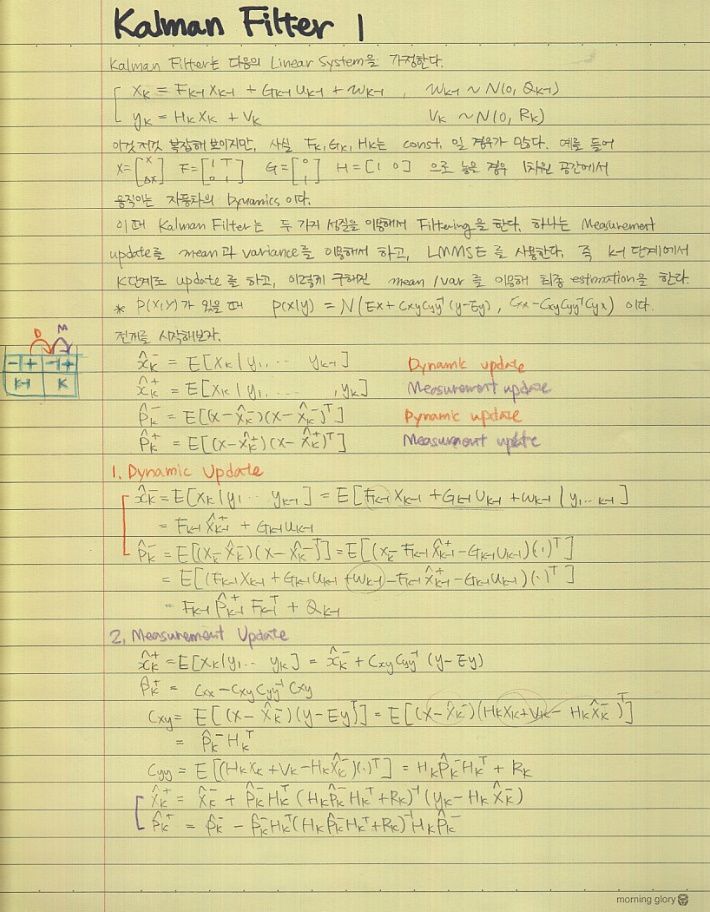 Kalman Filter 1
Kalman Filter는 다음의 Linear System을 가정한다.
x_k = F_{k-1} x_{k-1} + G_{k-1} u_{k-1} + w_{k-1} , w_{k-1} ~ N(0, Q_{k-1})
y_k = H_k x_k + v_k v_k ~ N(0, R_k)
이것저것 복잡해 보이지만, 사실 F_k, G_k, H_k는 const. 일 경우가 많다. 예로 들어
X=[x Δx] F=[1 T 0 1] G=[0 1] H=[1 0] 으로 놓은 경우 1차원 공간에서
움직이는 자동차의 Dynamics 이다.
이 때 Kalman Filter는 두 가지 성질을 이용해서 Filtering을 한다. 하나는 Measurement
update를 mean과 variance를 이용해서 하고, LMMSE를 사용한다. 즉 k-1 단계에서
k단계로 update를 하고, 이렇게 구해진 mean/var를 이용해 최종 estimation을 한다.
* P(x,y)가 있을 때 p(x|y) = N(Ex + Cxy Cyy⁻¹ (y-Ey), Cxx - Cxy Cyy⁻¹ Cyx) 이다.
전개를 시작해보자.
D M
- + - +
k-1 k
x̂_k^- = E[x_k | y_1, ... y_{k-1}] Dynamic update
x̂_k^+ = E[x_k | y_1, ... , y_k] Measurement update
P̂_k^- = E[(x-x̂_k^-)(x-x̂_k^-)^T] Dynamic update
P̂_k^+ = E[(x-x̂_k^+)(x-x̂_k^+)^T] Measurement update
1. Dynamic Update
x̂_k^- = E[x_k | y_1 ... y_{k-1}] = E[F_{k-1} x_{k-1} + G_{k-1} u_{k-1} + w_{k-1} | y_1...k-1]
= F_{k-1} x̂_{k-1}^+ + G_{k-1} u_{k-1}
P̂_k^- = E[(x_k - x̂_k^-)(x-x̂_k^-)^T] = E[(x_k - F_{k-1} x̂_{k-1}^+ - G_{k-1} u_{k-1})(·)^T]
= E[(F_{k-1} x_{k-1} + G_{k-1} u_{k-1} + w_{k-1} - F_{k-1} x̂_{k-1}^+ - G_{k-1} u_{k-1})(·)^T]
= F_{k-1} P̂_{k-1}^+ F_{k-1}^T + Q_{k-1}
2. Measurement Update
x̂_k^+ = E[x_k | y_1 ... y_k] = x̂_k^- + Cxy Cyy⁻¹ (y-Ey)
P̂_k^+ = Cxx - Cxy Cyy⁻¹ Cxy
Cxy = E[(x-x̂_k^-)(y-Ey)^T] = E[(x-x̂_k^-)(H_k x_k + v_k - H_k x̂_k^-)^T]
= P̂_k^- H_k^T
Cyy = E[(H_k x_k + v_k - H_k x̂_k^-)(·)^T] = H_k P̂_k^- H_k^T + R_k
x̂_k^+ = x̂_k^- + P̂_k^- H_k^T (H_k P̂_k^- H_k^T + R_k)⁻¹ (y_k - H_k x̂_k^-)
P̂_k^+ = P̂_k^- - P̂_k^- H_k^T (H_k P̂_k^- H_k^T + R_k)⁻¹ H_k P̂_k^-
morning glory